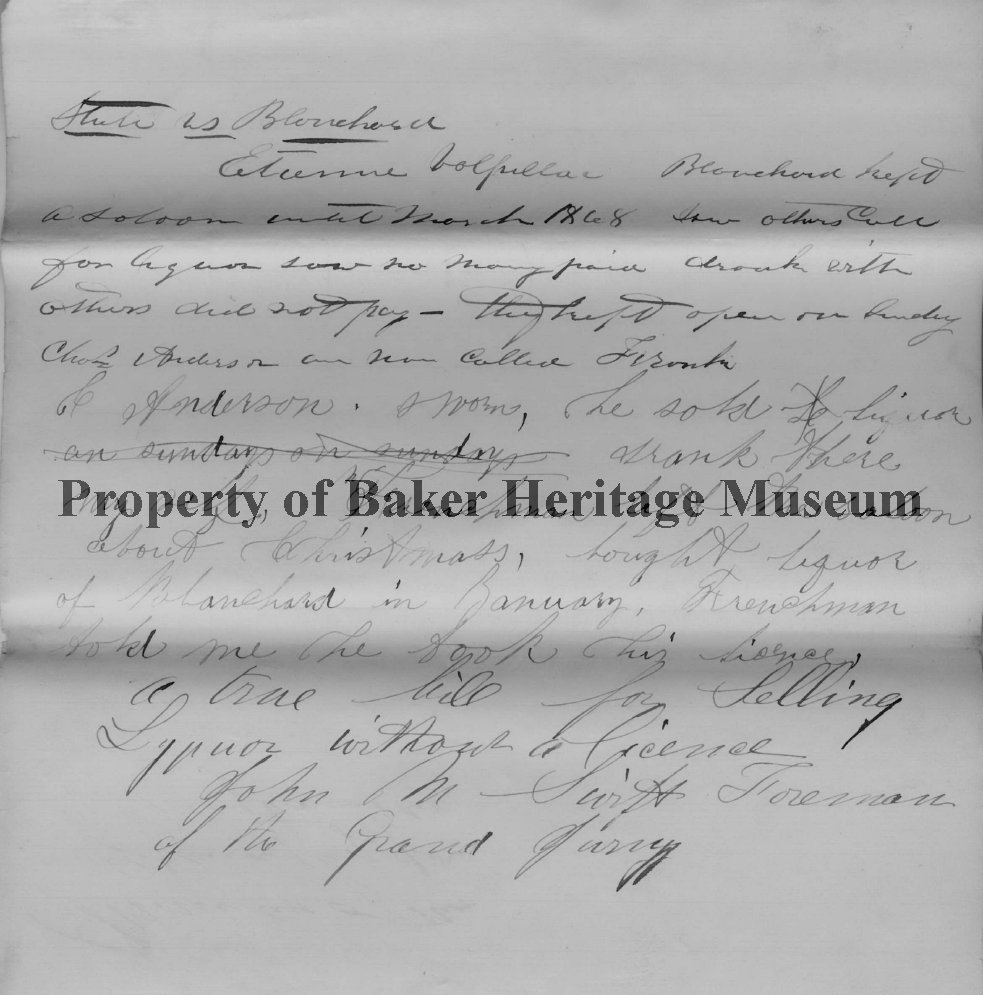 State vs Blanchard
Etienne Volpillac Blanchard kept
a saloon until March 1868 saw others call
for liquor saw no money paid drank with
others did not pay — they kept open on Sunday
Chas Anderson an non called Frank
C Anderson. sworn, he sold liquor
on sundays on sundays drank there
my self, Frenchman kept the saloon
Property of Baker Heritage Museum
about Christmass, bought liquor
of Blanchard in January, Frenchman
told me he took his licence,
a true bill for Selling
Lyquor without a licence
John M Swift Foreman
of the Grand Jurry